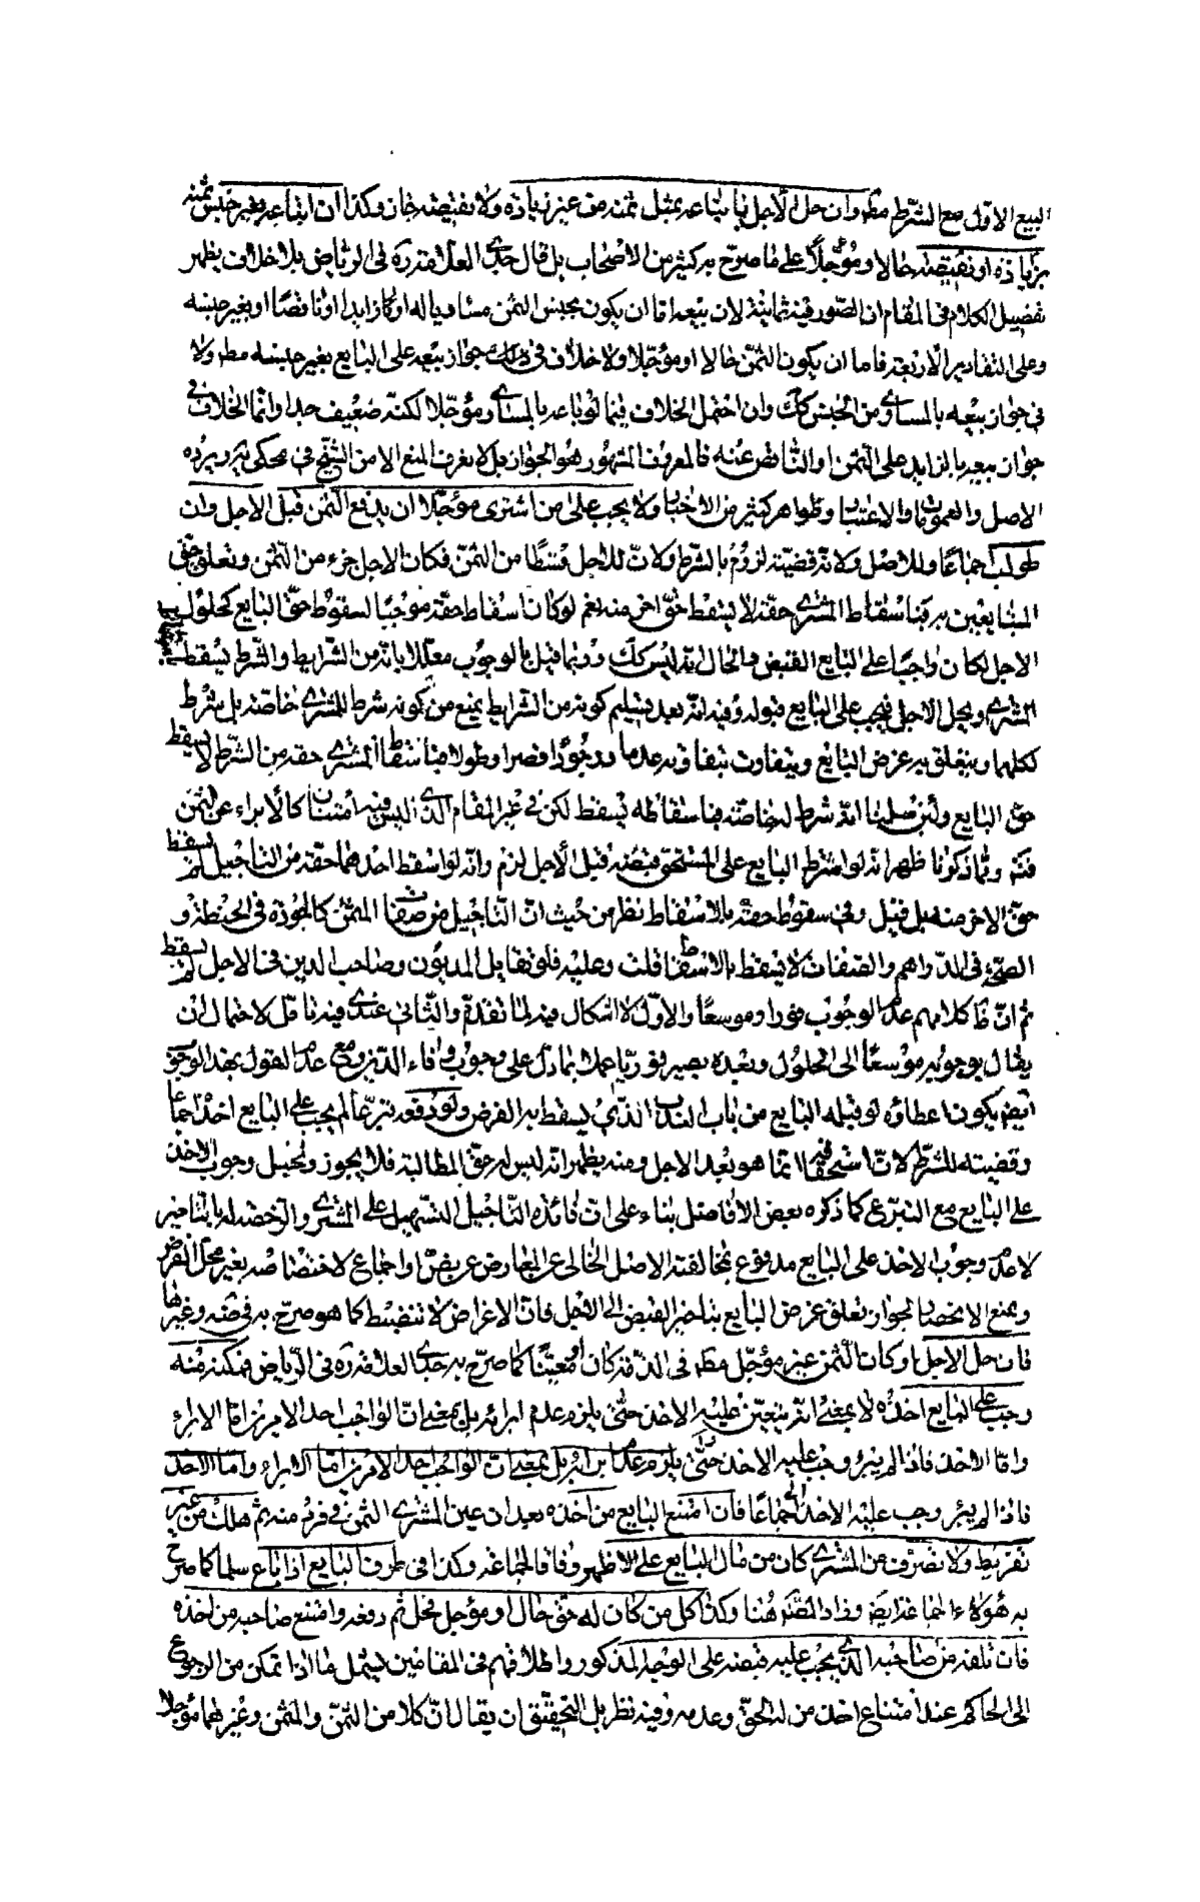 البيع الاول مع الشرط مطم وان حل الاجل فابتاعه بمثل ثمنه من غير زيادة ولا نقيصة جاز وكذا ان ابتاعه بغير جنس ثمنه
بزيادة او نقيصة حالا ومؤجلا على ما صرح به كثير من الاصحاب بل قال جدي العلا قدره في الرياض بلا خلاف يظهر
تفصيل الكلام في المقام ان الصور فيه ثمانية لان بيعه اما ان يكون بجنس الثمن مساويا له او زايدا او ناقصا او بغير جنسه
وعلى التقادير الاربعة فاما ان يكون الثمن حالا او مؤجلا ولا خلاف في ذلك جواز بيعه على البايع بغير جنسه مطم ولا
في جواز بيعه بالمساوي من الجنس كك وان احتمل الخلاف فيما لو باعه بالمساوي ومؤجلا لكنه ضعيف جدا وانما الخلاف في
جواز بيعه بالزايد على الثمن او الناقص عنه فالمعروف المشهور هو الجواز بل لا يعرف المنع الا من الشيخ في محكي يه ويرده
الاصل والعمومات والاعتبار وظواهر كثير من الاخبار ولا يجب على من اشترى مؤجلا ان يدفع الثمن قبل الاجل وان
طولب اجماعا وللاصل ولانه قضية لزوم بالشرط ولان للاجل قسطا من الثمن فكان الاجل جزء من الثمن وتعلق حق
المتبايعين به فباسقاط المشتري حقه لا يسقط حق اخر منه نعم لو كان اسقاط حقه موجبا لسقوط حق البايع كحلول
الاجل لكان واجبا على البايع القبض والحال انه ليس كك وربما قيل بالوجوب معللا بانه من الشرايط والشرط يسقط
المشتري ويحل الاجل فيجب على البايع قبوله وفيه انه بعد تسليم كونه من الشرايط يمنع من كونه شرطا للمشتري خاصة بل شرط
لكلهما ويتعلق به غرض البايع ويتفاوت بتفاوته عدما ووجودا قصرا وطولا فباسقاط المشتري حقه من الشرط لا يسقط
حق البايع ولئن سلمنا انه شرط لخاصته فباسقاطه يسقط لكن في غير المقام الذي ليس فيه امتنان كالابراء عن الثمن
فتم ومما ذكرنا ظهر انه لو اشترط البايع على المستحق قبضه قبل الاجل لزم وانه لو اسقط احدهما حقه من التاجيل لم يسقط
حق الاخر منه بل قيل وفي سقوط حقه بالاسقاط نظر من حيث ان التاجيل من صفات المثمن كالجودة في الحنطة و
الصحة في الدراهم والصفات لا يسقط بالاسقاط قلت وعليه فلو تقايل المديون وصاحب الدين في الاجل لم يسقط
ثم ان ظاهر كلامهم عدم الوجوب فورا وموسعا والاول لا اشكال فيه لما تقدم والثاني عندي فيه تامل لاحتمال ان
يقال بوجوبه موسعا الى الحلول وبعده يصير فوريا عملا بما دل على وجوب وفاء الدين ومع عدم القول بهذا الوجوب
ايض يكون اعطاؤه لو قبله البايع من باب الندب الذي يسقط به الفرض ولو دفعه تبرعا لم يجب على البايع اخذه اجماعا
وقضيته للشرط لان استحقاقه انما هو بعد الاجل ومنه يظهر انه ليس له حق المطالبة فلا يجوز وتخيل وجوب الاخذ
على البايع مع التبرع كما ذكره بعض الافاضل بناء على ان فائدة التاجيل التسهيل على المشتري والرخصة له بالتاخير
لا عدم وجوب الاخذ على البايع مدفوع بمخالفته الاصل الخالي عن المعارض عن نص او اجماع لاختصاصه بغير محل الفرض
وبمنع الانحصار لجواز تعلق غرض البايع بتاخير القبض الى الاجل فان الاغراض لا تنضبط كما هو صرح به في ضه وغيرها
فان حل الاجل او كان الثمن غير مؤجل مطم في الذمة كان او معينا كما صرح به جدي العلا قدره في الرياض فمكنه منه
وجب على البايع اخذه لا بمعنى انه يتعين عليه الاخذ حتى يلزم عدم ابرائه بل بمعنى ان الواجب احد الامرين اما الابراء
واما الاخذ فاذا لم يبرء وجب عليه الاخذ حتى يلزم عدم ابرائه بل بمعنى ان الواجب احد الامرين اما الابراء واما الاخذ
فاذا لم يبرء وجب عليه الاخذ اجماعا فان امتنع البايع من اخذه بعد ان عين المشتري الثمن في فرد منه ثم هلك من غير
تفريط ولا تصرف من المشتري كان من مال البايع على الاظهر وفاقا لجماعة وكذا في طرف البايع اذا باع سلما كما صرح
به هؤلاء الجماعة ايض وزاد المصنف هنا وكذا كل من كان له حق حال او مؤجل فحل ثم دفعه وامتنع صاحبه من اخذه
فان تلفه من صاحبه الذي يجب عليه قبضه على الوجه المذكور واطلاقهم في المقامين يشمل ما اذا تمكن من الرجوع
الى الحاكم عند امتناع اخذ من له الحق وعدمه وفيه نظر بل التحقيق ان يقال ان كلا من الثمن والمثمن وغيرهما مؤجلا